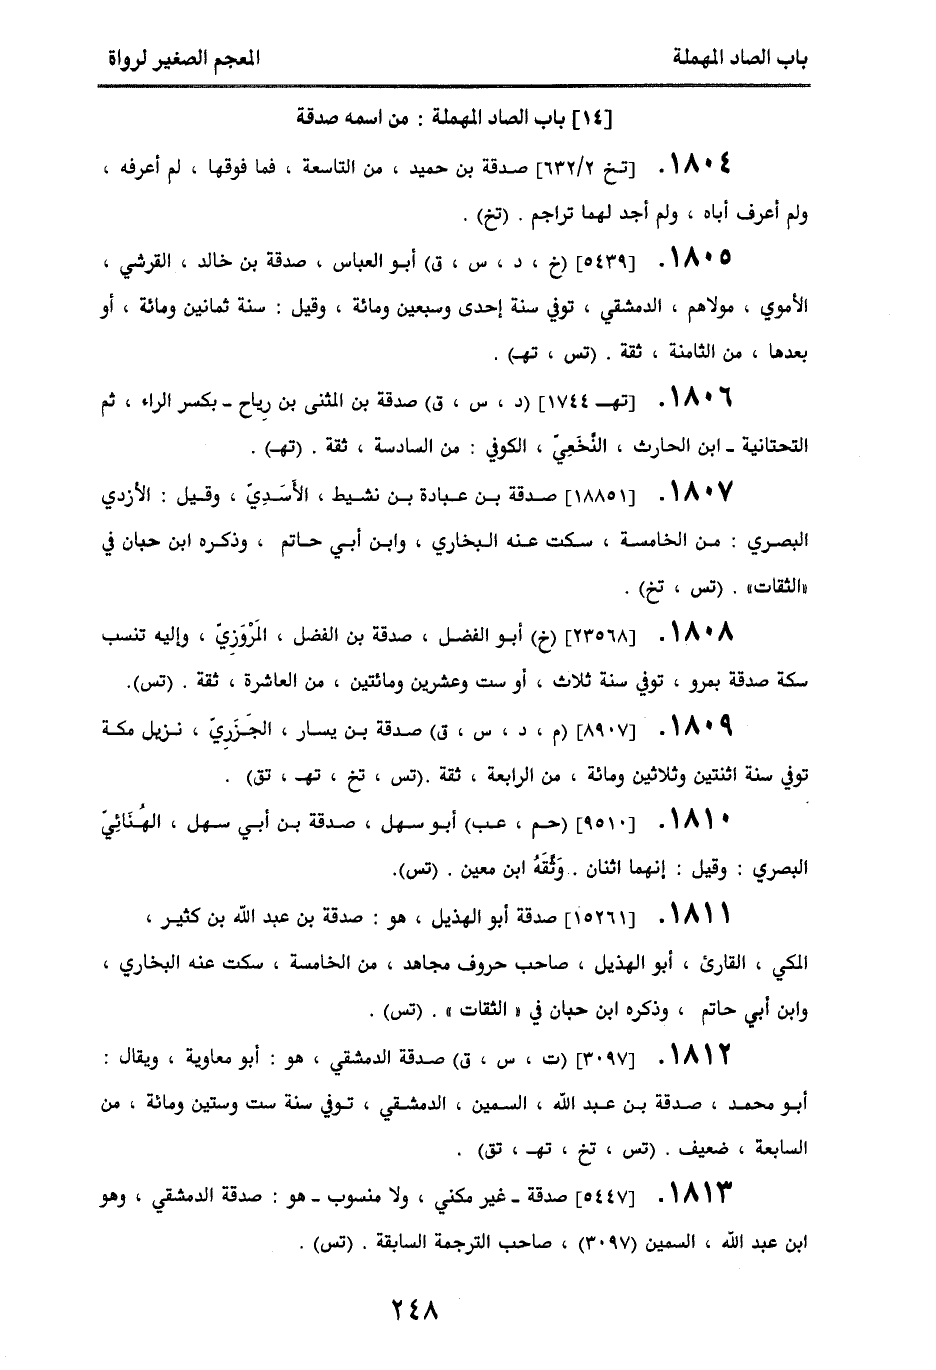 باب الصاد المهملة المعجم الصغير لرواة
[١٤] باب الصاد المهملة : من اسمه صدقة
١٨٠٤. [تخ ٦٣٢/٢] صدقة بن حميد ، من التاسعة ، فما فوقها ، لم أعرفه ،
ولم أعرف أباه ، ولم أجد لهما تراجم . (تخ) .
١٨٠٥. [٥٤٣٩] (خ ، د ، س ، ق) أبو العباس ، صدقة بن خالد ، القرشي ،
الأموي ، مولاهم ، الدمشقي ، توفي سنة إحدى وسبعين ومائة ، وقيل : سنة ثمانين ومائة ، أو
بعدها ، من الثامنة ، ثقة . (تس ، تهـ) .
١٨٠٦. [تهـ ١٧٤٤] (د ، س ، ق) صدقة بن المثنى بن رياح ـ بكسر الراء ، ثم
التحتانية ـ ابن الحارث ، النَّخَعِيّ ، الكوفي : من السادسة ، ثقة . (تهـ) .
١٨٠٧. [١٨٨٥١] صدقة بن عبادة بن نشيط ، الأَسَدِيّ ، وقيل : الأزدي
البصري : من الخامسة ، سكت عنه البخاري ، وابن أبي حاتم ، وذكره ابن حبان في
«الثقات» . (تس ، تخ) .
١٨٠٨. [٢٣٥٦٨] (خ) أبو الفضل ، صدقة بن الفضل ، المَرْوَزِيّ ، وإليه تنسب
سكة صدقة بمرو ، توفي سنة ثلاث ، أو ست وعشرين ومائتين ، من العاشرة ، ثقة . (تس).
١٨٠٩. [٨٩٠٧] (م ، د ، س ، ق) صدقة بن يسار ، الجَزَرِيّ ، نزيل مكة
توفي سنة اثنتين وثلاثين ومائة ، من الرابعة ، ثقة .(تس ، تخ ، تهـ ، تق) .
١٨١٠. [٩٥١٠] (حم ، عب) أبو سهل ، صدقة بن أبي سهل ، الهُنَائِيّ
البصري : وقيل : إنهما اثنان . وَثَّقَهُ ابن معين . (تس).
١٨١١. [١٥٢٦١] صدقة أبو الهذيل ، هو : صدقة بن عبد الله بن كثير ،
المكي ، القارئ ، أبو الهذيل ، صاحب حروف مجاهد ، من الخامسة ، سكت عنه البخاري ،
وابن أبي حاتم ، وذكره ابن حبان في « الثقات » . (تس) .
١٨١٢. [٣٠٩٧] (ت ، س ، ق) صدقة الدمشقي ، هو : أبو معاوية ، ويقال :
أبو محمد ، صدقة بن عبد الله ، السمين ، الدمشقي ، توفي سنة ست وستين ومائة ، من
السابعة ، ضعيف . (تس ، تخ ، تهـ ، تق) .
١٨١٣. [٥٤٤٧] صدقة ـ غير مكني ، ولا منسوب ـ هو : صدقة الدمشقي ، وهو
ابن عبد الله ، السمين (٣٠٩٧) ، صاحب الترجمة السابقة . (تس) .
٢٤٨